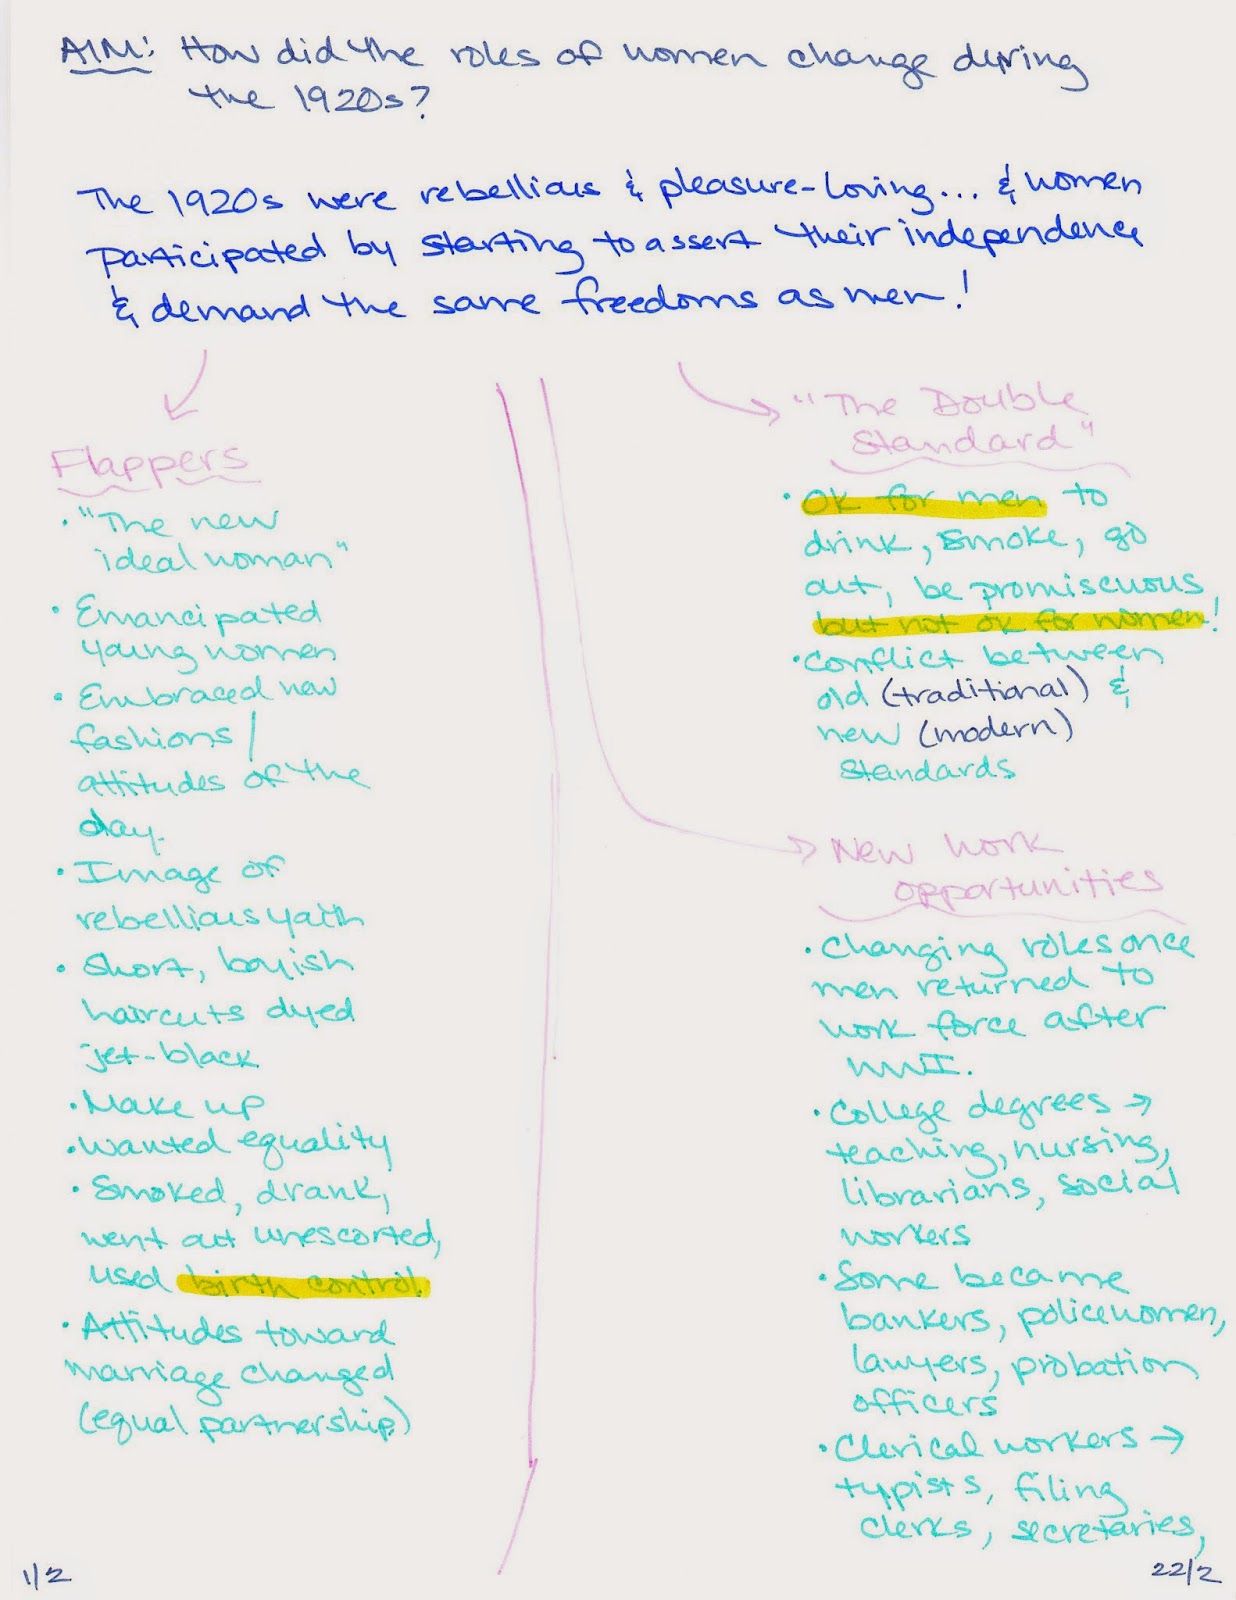 AIM: How did the roles of women change during
the 1920s?
The 1920s were rebellious & pleasure-loving... & women
participated by starting to assert their independence
& demand the same freedoms as men!
Flappers
• "The new
ideal woman"
• Emancipated
young women
• Embraced new
fashions /
attitudes of the
day.
• Image of
rebellious youth
• Short, boyish
haircuts dyed
jet-black
• Make up
• Wanted equality
• Smoked, drank,
went out unescorted,
used birth control.
• Attitudes toward
marriage changed
(equal partnership)
"The Double
Standard"
• OK for men to
drink, smoke, go
out, be promiscuous
but not ok for women!
• Conflict between
old (traditional) &
new (modern)
standards
New work
opportunities
• Changing roles once
men returned to
work force after
WWI.
• College degrees →
teaching, nursing,
librarians, social
workers
• Some became
bankers, policewomen,
lawyers, probation
officers
• Clerical workers →
typists, filing
clerks, secretaries,
1/2
22/2